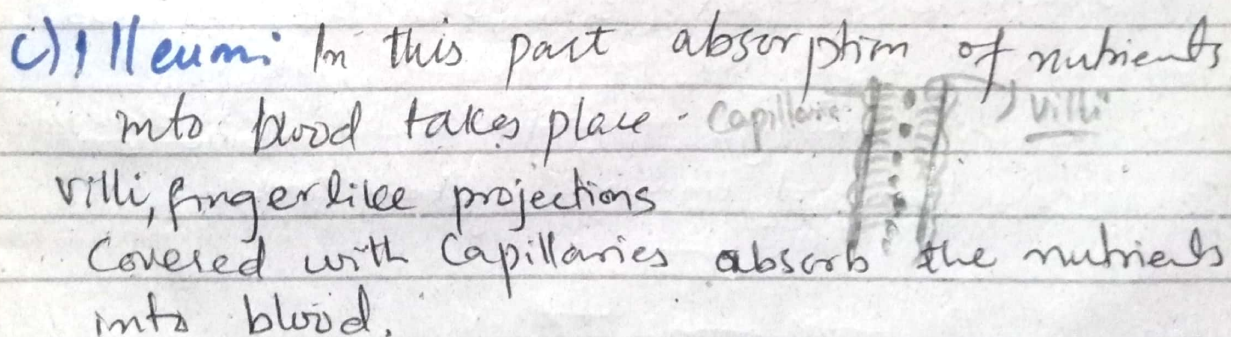 c) Illeum: In this part absorption of nutrients
into blood takes place. Capillarie Villi
villi, fingerlike projections
Covered with Capillaries absorb the nutrients
into blood.